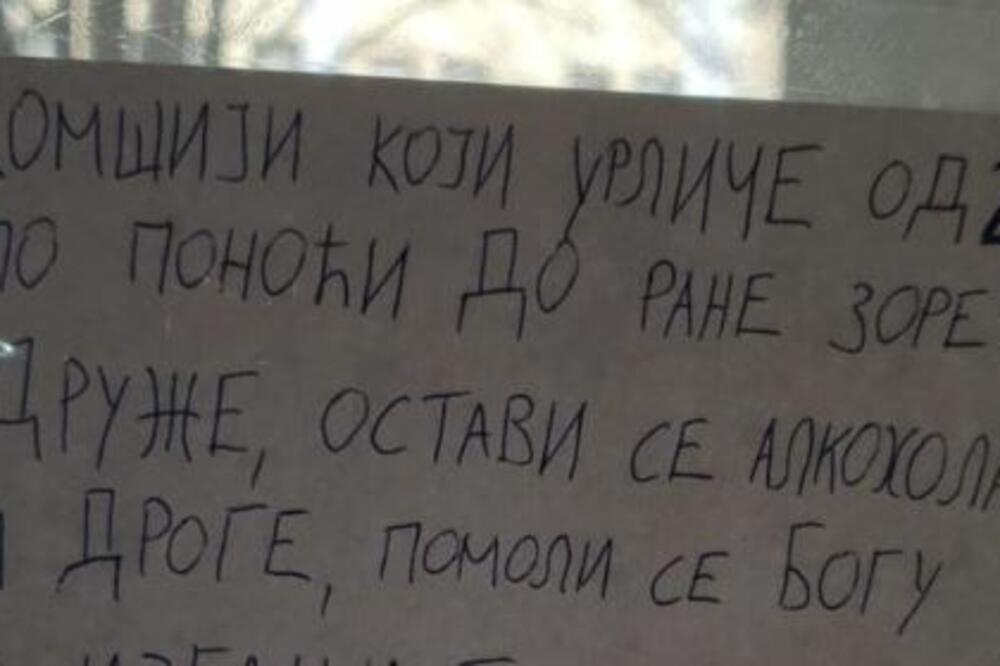 ОМШИЈИ КОЈИ УРЛИЧЕ ОД 2
ПО ПОНОЋИ ДО РАНЕ ЗОРЕ
ДРУЖЕ, ОСТАВИ СЕ АЛКОХОЛА
И ДРОГЕ, ПОМОЛИ СЕ БОГУ